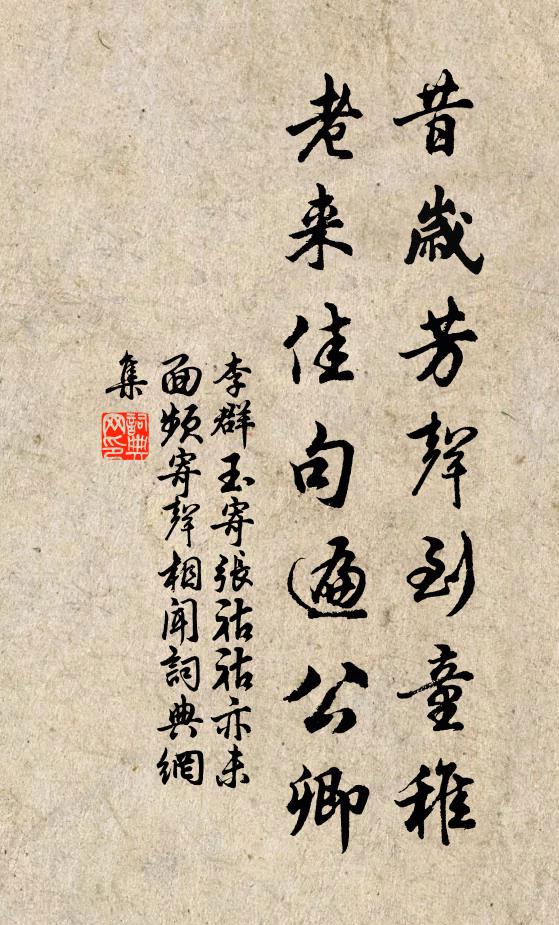 昔歲芳聲到童稚
老来佳句遍公卿
李群玉寄張祜祜亦未
面頻寄聲相聞詞典網
集
詞典
网印